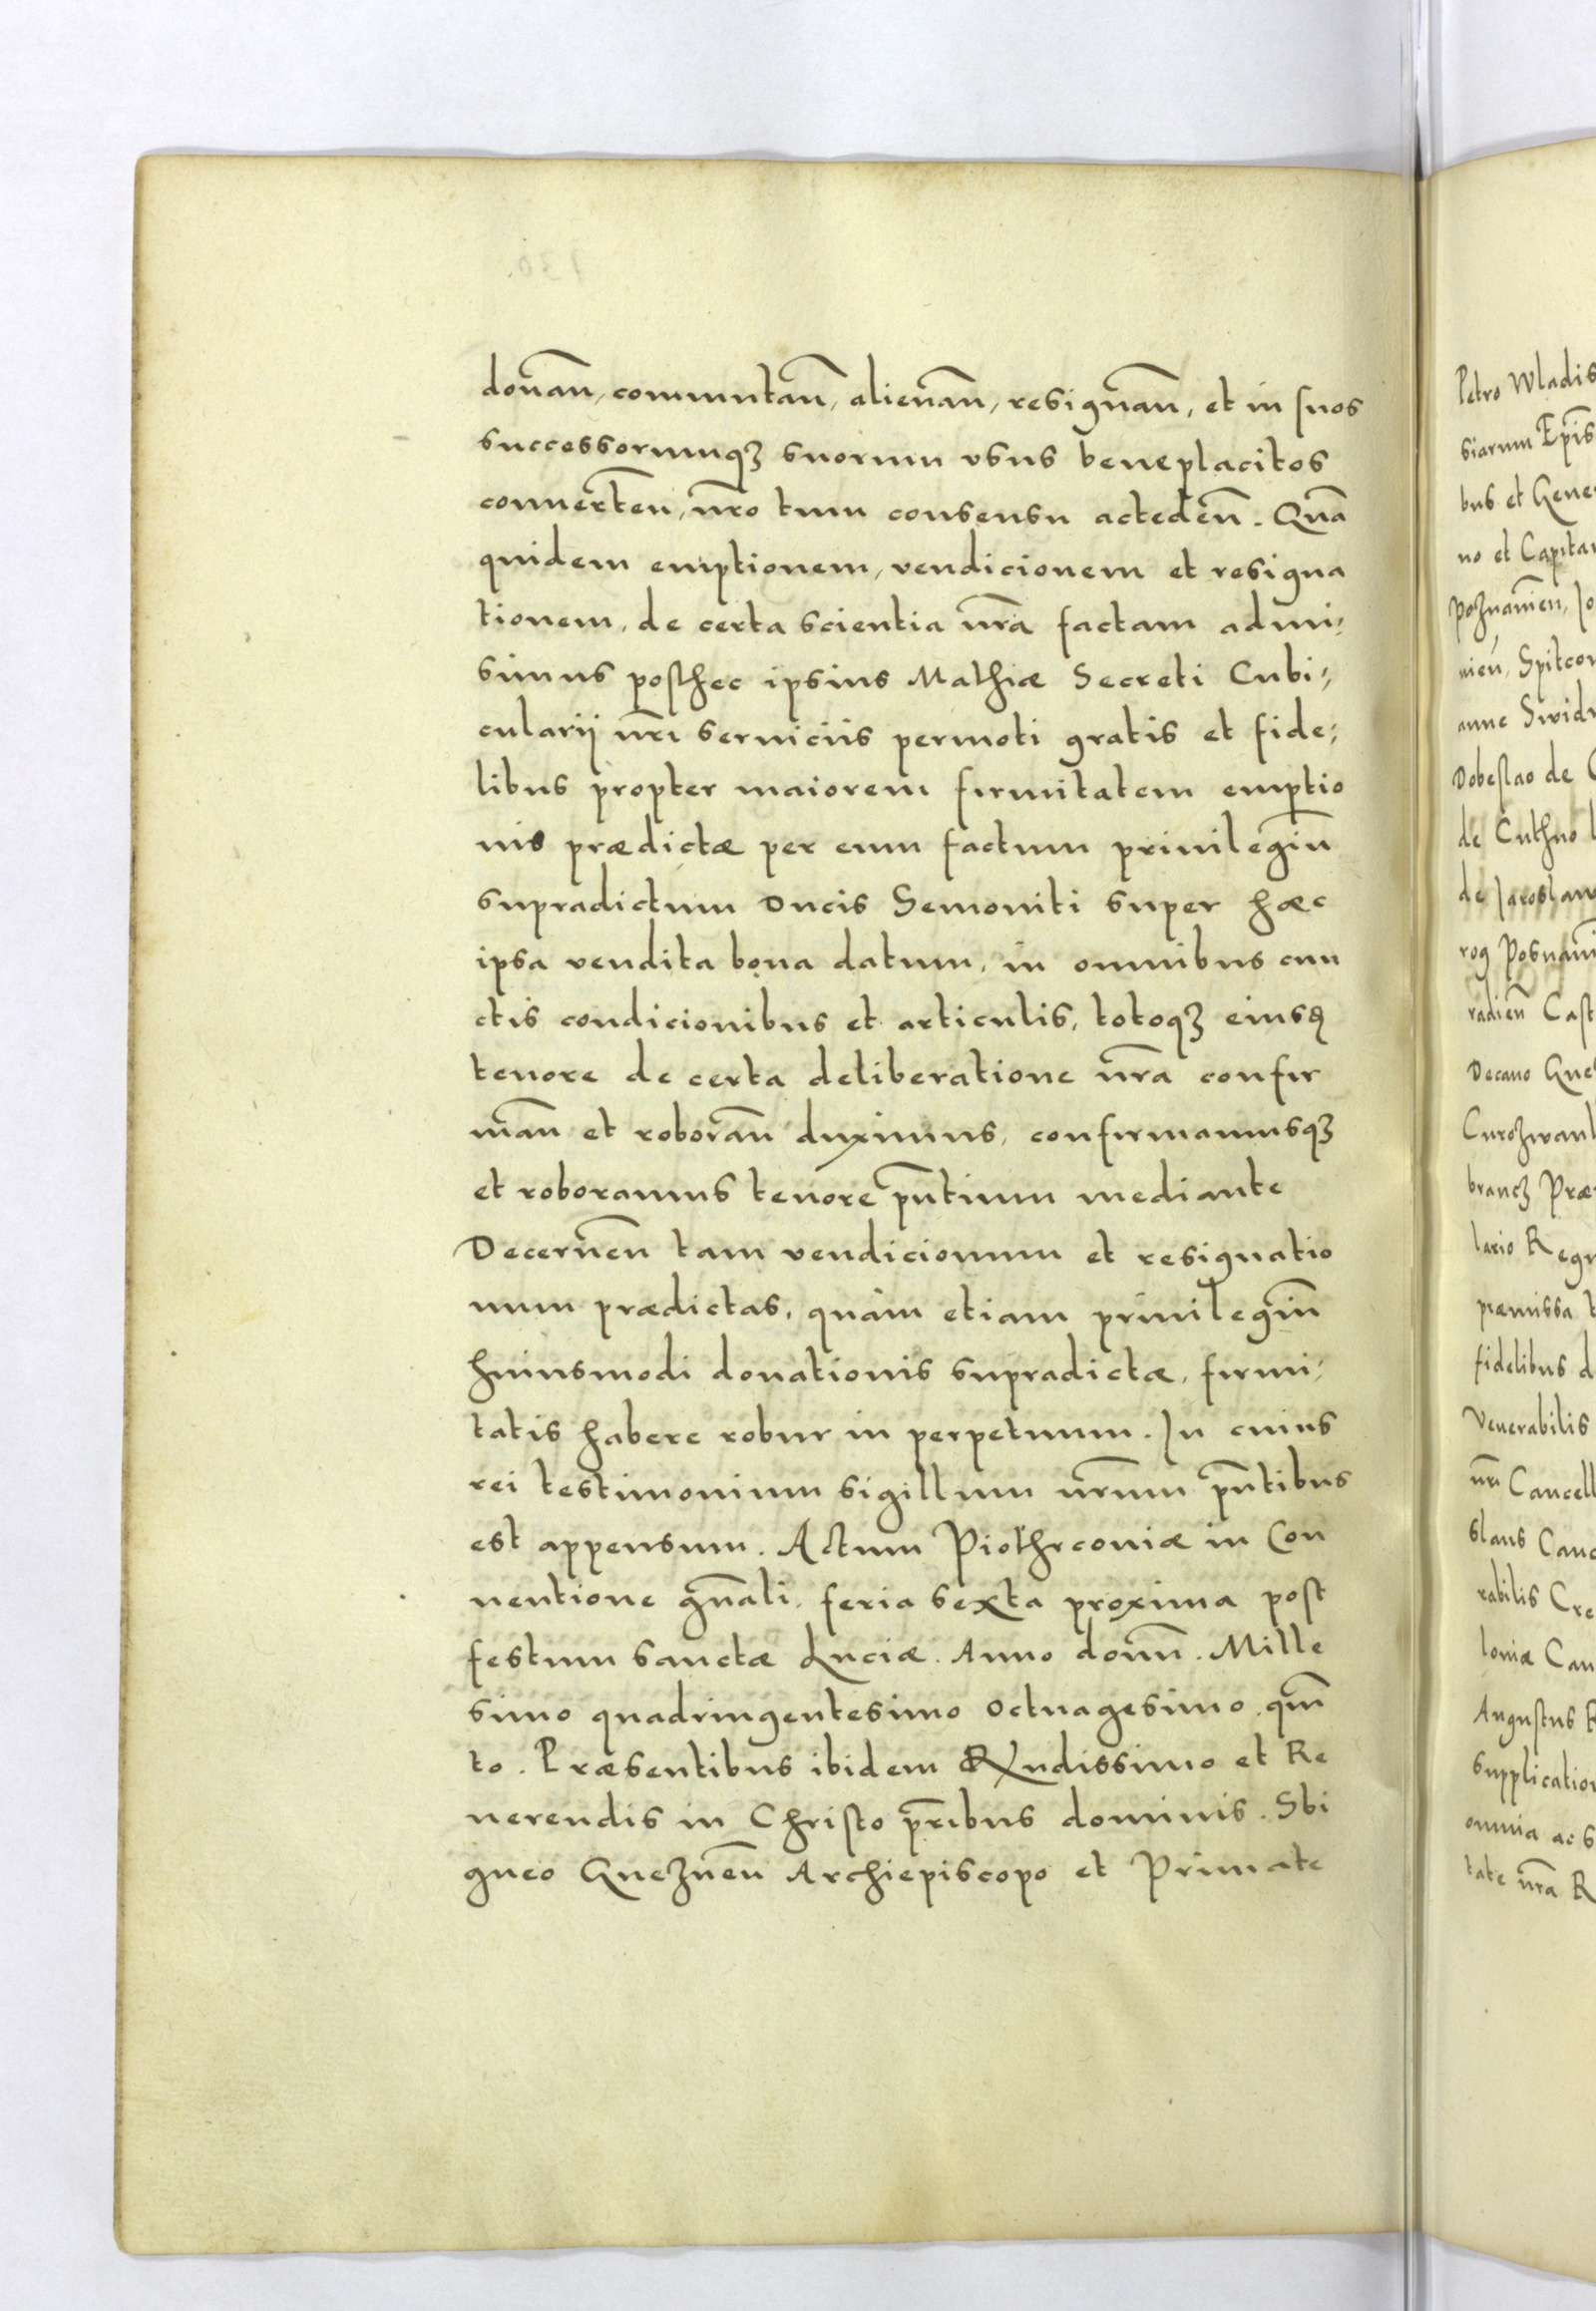 donan̄, commutan̄, alienan̄, resignan̄, et in suos
successorumqȝ suorum vsus beneplacitos
conuerten̄, nr̄o tum consensu acteden̄. Quā
quidem emptionem, vendicionem et resigna
tionem, de certa scientia nr̄a factam admi⸗
simus posthec ipsius Mathiæ Secreti Cubi⸗
cularij nr̄i seruiciis permoti gratis et fide⸗
libus propter maiorem firmitatem emptio
nis prædictæ per eum factum priuilegiū
supradictum Ducis Semouiti super hæc
ipsa vendita bona datum, in omnibus cun
ctis condicionibus et articulis, totoqȝ eiusꝺ
tenore de certa deliberatione nr̄a confir
man̄ et roboran̄ duximus, confirmamusqȝ
et roboramus tenore pn̄tium mediante
Decernen̄ tam vendicionum et resignatio
num prædictas, quàm etiam priuilegiū
huiusmodi donationis supradictæ, firmi⸗
tatis habere robur in perpetuum. In cuius
rei testimonium sigillum nr̄um pn̄tibus
est appensum. Actum Piothrconiæ in Con
uentione gn̄ali, feria sexta proxima post
festum sanctæ Luciæ. Anno domn̄. Mille
simo quadringentesimo octuagesimo, qui͞n
to. Præsentibus ibidem Rx̄ndissimo et Re
uerendis in Christo pr̄ibus dominis. Sbi
gneo Gneznen̄ Archiepiscopo et Primate
Petro Wladis
siarum Epis̄
bus et Gene
no et Capita
Poznanien̄, Jo
nien̄, Spitco
anne Swid
Dobeslao de
de Cuthno
de Jaroslaw
rog Posnani
radien̄ Cast
Decano Gne
Curozwan
brancz Præ
lario Regn
præmissa t
fidelibus d
Venerabilis
nr̄i Cancell
slaus Canc
rabilis Cre
loniæ Can
Augustus R
supplicatio
omnia ac s
tate nr̄a R